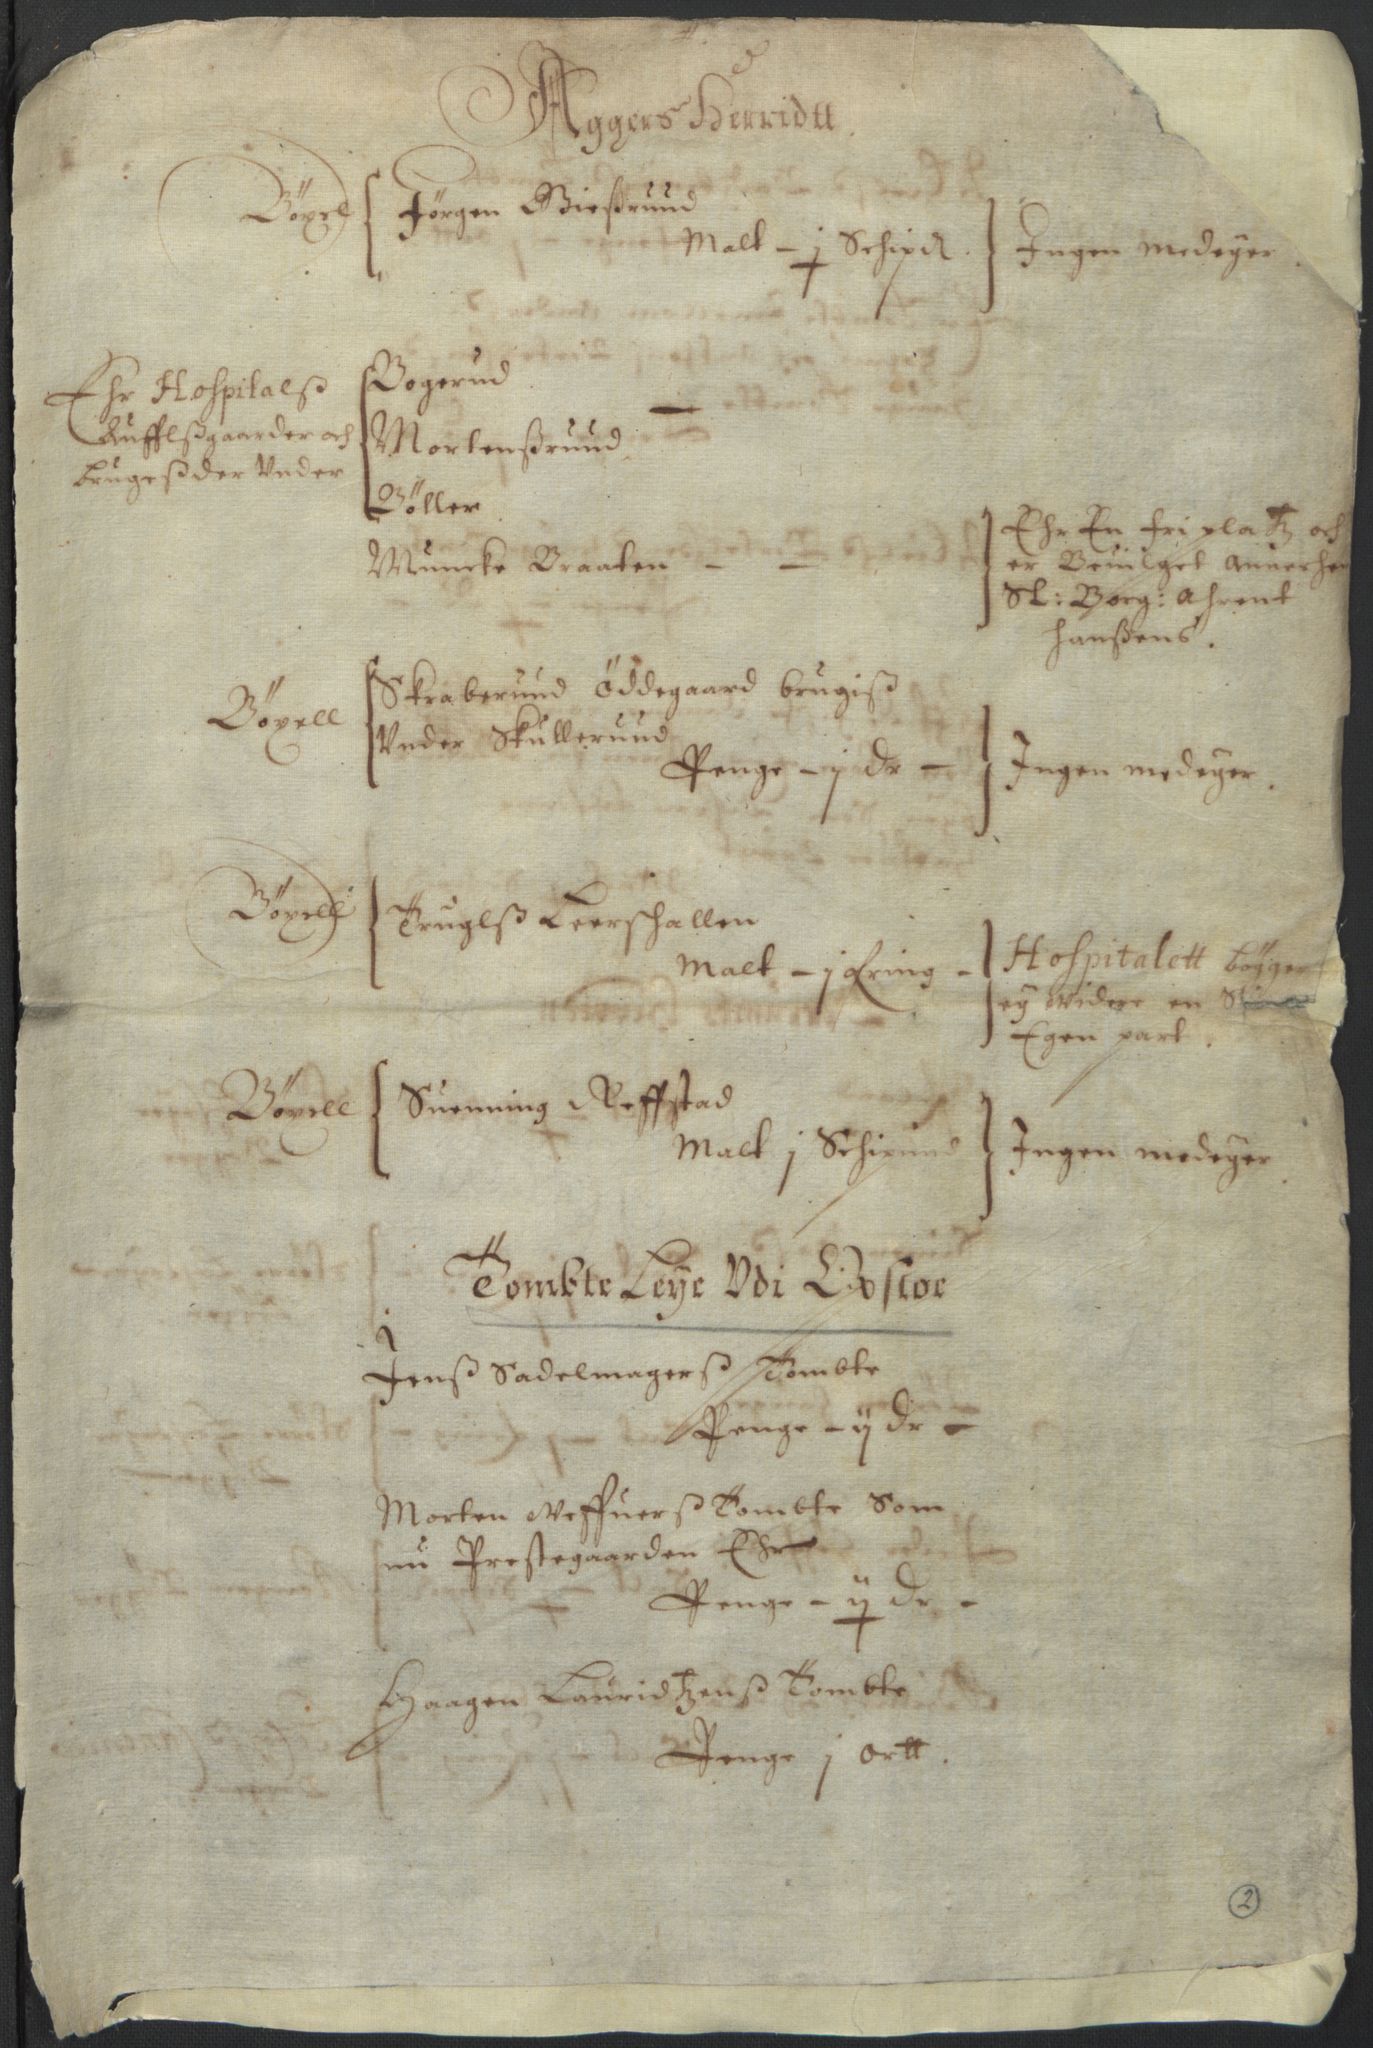 Aggers Herridtt.
Böxel
Jörgen Gießruud
Malt - j Schipd.
Ingen medeyer.
Ehr Hospitalß
Aufflßgaarder och
brugeß der Vnder
Bogerud
Mortenßruud
Böller
Muncke Braaten -
Ehr En fri platz och
er Beuilget
Sl: Borg: Ahrent
Hanßens.
Böxell
Skraberuud Öddegaard brugiß
Vnder Skulleruud
Penge - j dr -
Ingen medeyer.
Böxell
Truglß Leerschallen
Malt - j fring -
Hospitalett böyger
ey videre en
Egen part.
Böxell
Suenning Reffstad
Malt j Schipund
Ingen medeyer
Tombte Leye Vdi Opsloe
Jenß Sadelmagerß Tombte
Penge - ij dr -
Morten Veffuerß Tombte Som
nu Prestegaarden Ehr
Penge - ij dr -
Haagen Lauridtzenß Tombte
Penge j ortt.
2